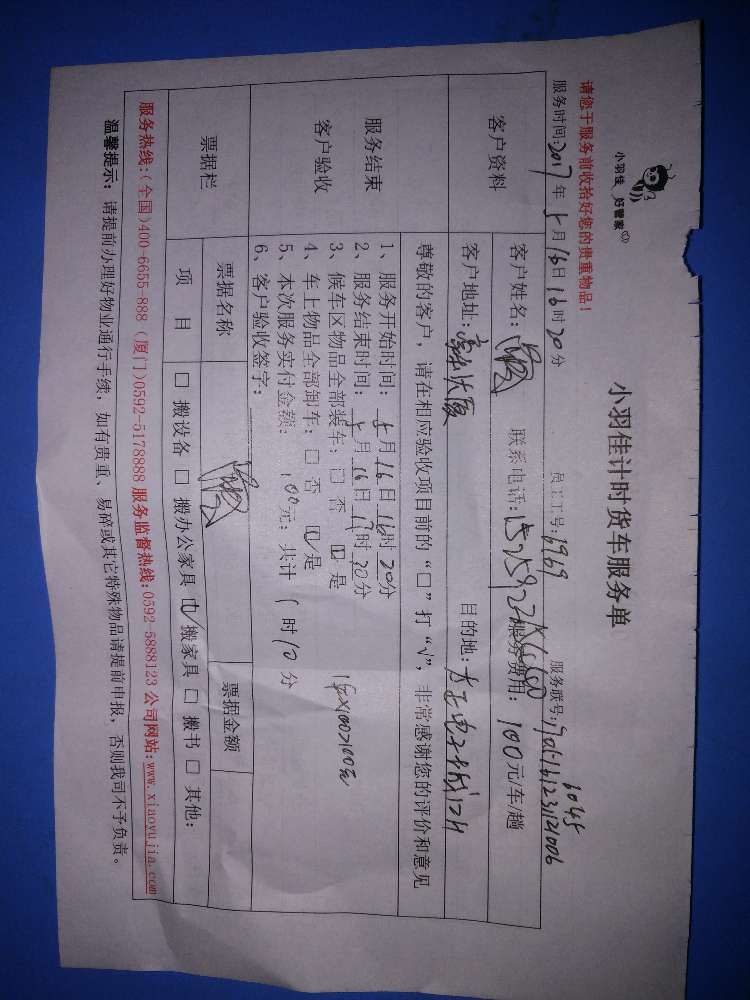 小羽佳 好管家
小羽佳计时货车服务单
请您于服务前收拾好您的贵重物品！
服务时间:2017年5月16日16时20分 员工工号:6969 服务联号:
客户资料
客户姓名: 联系电话: 服务费用: 100元/车/趟
客户地址: 目的地:
尊敬的客户，请在相应验收项目前的“□”打“√”，非常感谢您的评价和意见
服务结束
客户验收
1、服务开始时间: 5月16日16时20分
2、服务结束时间: 5月16日17时30分
3、候车区物品全部装车: □ 否 ☑ 是
4、车上物品全部卸车: □ 否 ☑ 是
5、本次服务实付金额: 100元; 共计 1时10分
6、客户验收签字:
票据栏
票据名称 票据金额
项 目 □ 搬设备 □ 搬办公家具 ☑ 搬家具 □ 搬书 □ 其他:
服务热线:(全国)400-6655-888 (厦门)0592-5178888 服务监督热线:0592-5888123 公司网站:www.xiaoyujia.com
温馨提示: 请提前办理好物业通行手续，如有贵重、易碎或其它特殊物品请提前申报，否则我司不予负责。